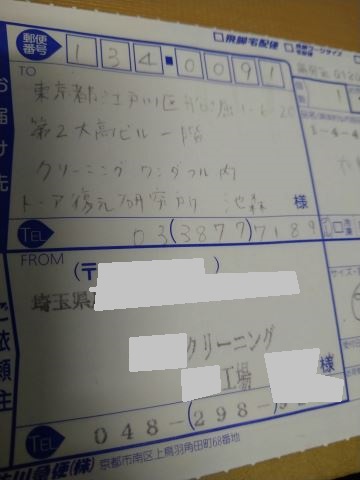 郵便番号 134-0091
□ 飛脚宅配便
お届け先
TO
東京都江戸川区船堀1-6-20
第2大高ビル一階
クリーニングワンダフル内
トーア復元研究所 池森 様
TEL 03(3877)7189
1-4-4
FROM (〒
埼玉県
クリーニング
工場 様
ご依頼主
TEL 048-(298-
川急便(株) 京都市南区上鳥羽角田町68番地